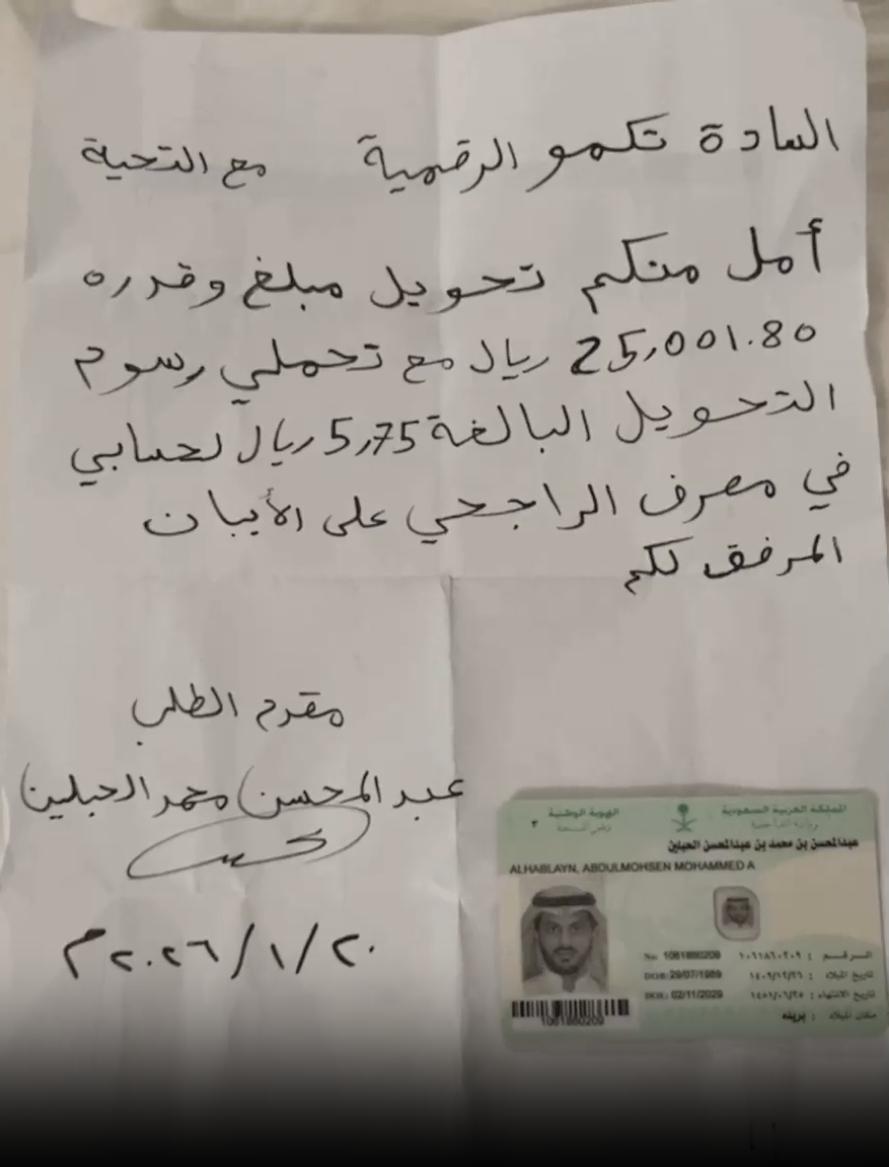 السادة تكمو الرقمية مع التحية
أمل منكم تحويل مبلغ وقدره
25,001.80 ريال مع تحملي رسوم
التحويل البالغة 5,75 ريال لحسابي
في مصرف الراجحي على الأيبان
المرفق لكم
مقدم الطلب
عبد المحسن محمد الحبلين
٢٠/١/٢٠٢٦م
المملكة العربية السعودية
وزارة الداخلية
الهوية الوطنية
٢
عبدالمحسن بن محمد بن عبدالمحسن الحبلين
ALHABLAYN, ABDULMOHSEN MOHAMMED A
الرقم : ١٠٦١٨٦٠٢٠٩ No: 1061860209
تاريخ الميلاد : ١٤٠٩/١٢/٢٦ DOB: 29/07/1989
تاريخ الانتهاء : ١٤٥١/٠٦/٢٥ DOE: 02/11/2029
مكان الميلاد : بريده
1061860209